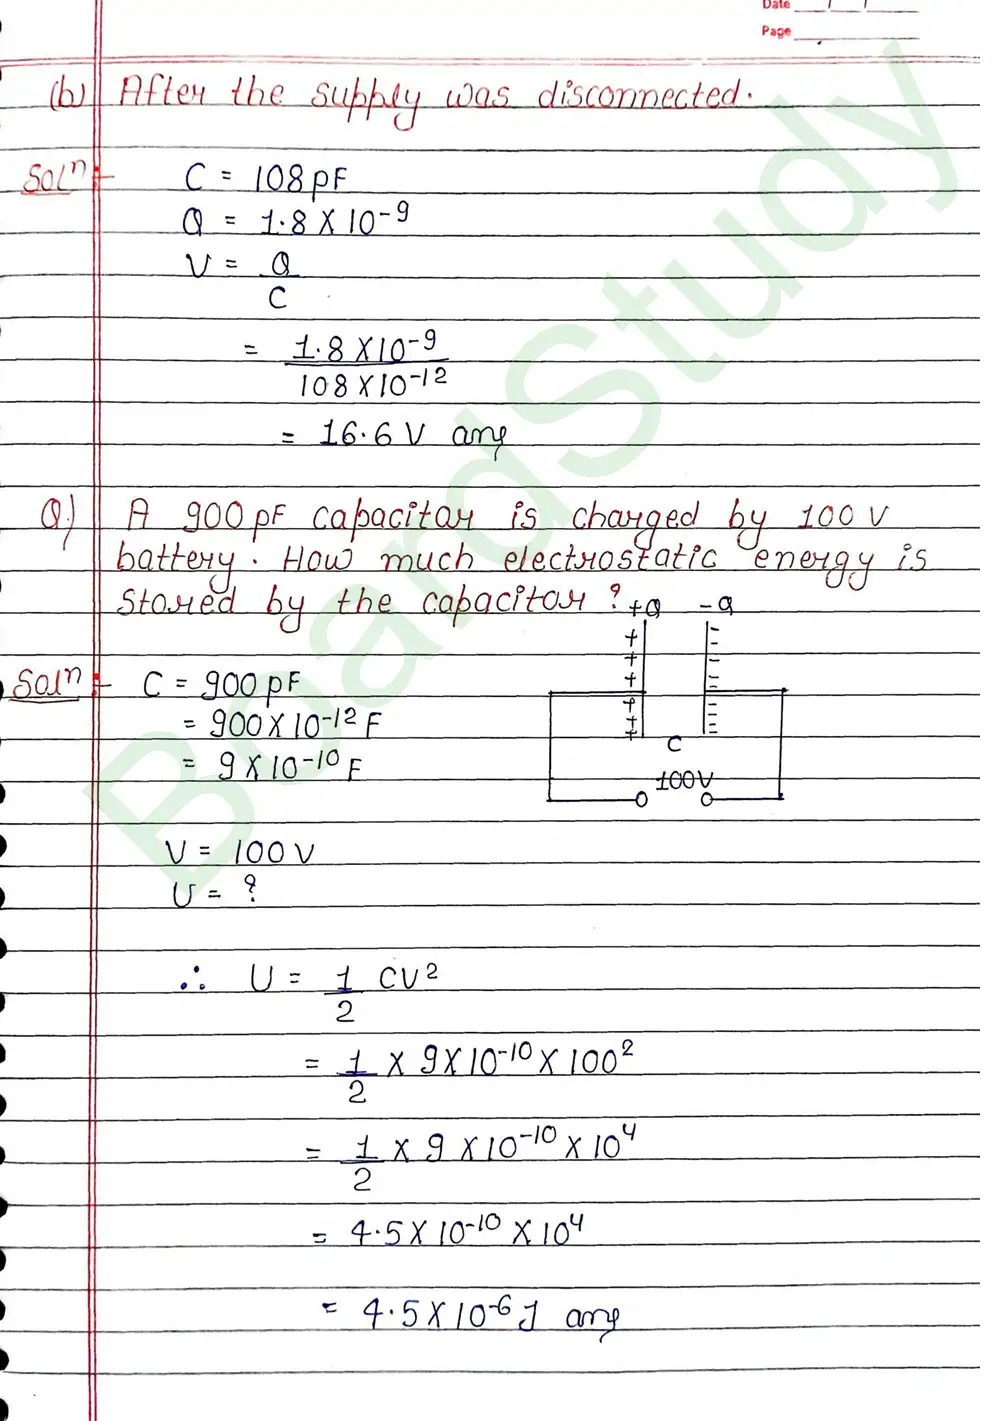 Date / /
Page
(b) After the supply was disconnected.
Solⁿ :- C = 108 pF
Q = 1.8 X 10⁻⁹
V = Q
C
= 1.8 X 10⁻⁹
108 X 10⁻¹²
= 16.6 V ans
Q.) A 900 pF capacitor is charged by 100 V
battery. How much electrostatic energy is
stored by the capacitor ? +Q -Q
Solⁿ :- C = 900 pF
= 900 X 10⁻¹² F
= 9 X 10⁻¹⁰ F
C
100V
V = 100 V
U = ?
∴ U = 1 CV²
2
= 1 X 9 X 10⁻¹⁰ X 100²
2
= 1 X 9 X 10⁻¹⁰ X 10⁴
2
= 4.5 X 10⁻¹⁰ X 10⁴
= 4.5 X 10⁻⁶ J ans
BoardStudy